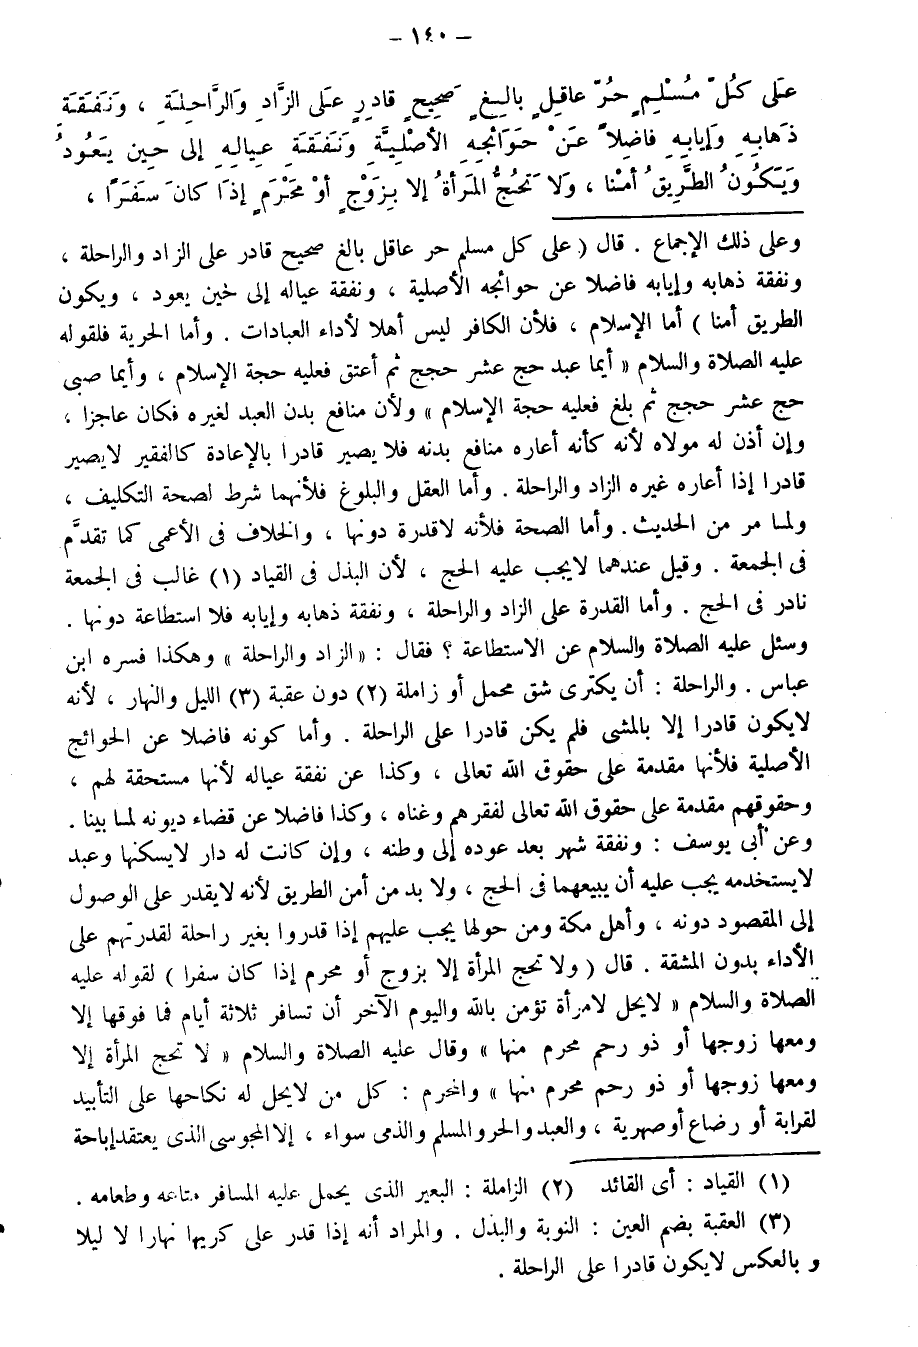 – ١٤٠ –
عَلَى كُلِّ مُسْلِمٍ حُرٍّ عاقِلٍ بالِغٍ صَحِيحٍ قادِرٍ عَلَى الزَّادِ وَالرَّاحِلَةِ ، وَنَفَقَةِ
ذَهابِهِ وَإِيابِهِ فاضِلاً عَنْ حَوَائْجِهِ الأصْلِيَّةِ وَنَفَقَةِ عِيالِهِ إلى حِينِ يَعُودُ
وَيَكُونُ الطَّرِيقُ أمْنا ، وَلَا تَحُجُّ المَرأةُ إلا بِزَوْجٍ أوْ مَحْرَمٍ إذَا كانَ سَفَرًا ،
وعلى ذلك الإجماع . قال ( على كل مسلم حر عاقل بالغ صحيح قادر على الزاد والراحلة ،
ونفقة ذهابه وإيابه فاضلا عن حوائجه الأصلية ، ونفقة عياله إلى خين يعود ، ويكون
الطريق أمنا ) أما الإسلام ، فلأن الكافر ليس أهلا لأداء العبادات . وأما الحرية فلقوله
عليه الصلاة والسلام « أيما عبد حج عشر حجج ثم أعتق فعليه حجة الإسلام ، وأيما صبى
حج عشر حجج ثم بلغ فعليه حجة الإسلام » ولأن منافع بدن العبد لغيره فكان عاجزا ،
وإن أذن له مولاه لأنه كأنه أعاره منافع بدنه فلا يصير قادرا بالإعادة كالفقير لايصير
قادرا إذا أعاره غيره الزاد والراحلة . وأما العقل والبلوغ فلأنهما شرط لصحة التكليف ،
ولما مر من الحديث . وأما الصحة فلأنه لاقدرة دونها ، والخلاف فى الأعمى كما تقدَّم
فى الجمعة . وقيل عندهما لايجب عليه الحج ، لأن البذل فى القياد (١) غالب فى الجمعة
نادر فى الحج . وأما القدرة على الزاد والراحلة ، ونفقة ذهابه وإيابه فلا استطاعة دونها .
وسئل عليه الصلاة والسلام عن الاستطاعة ؟ فقال : « الزاد والراحلة » وهكذا فسره ابن
عباس . والراحلة : أن يكترى شق محمل أو زاملة (٢) دون عقبة (٣) الليل والنهار ، لأنه
لايكون قادرا إلا بالمشى فلم يكن قادرا على الراحلة . وأما كونه فاضلا عن الحوائج
الأصلية فلأنها مقدمة على حقوق الله تعالى ، وكذا عن نفقة عياله لأنها مستحقة لهم ،
وحقوقهم مقدمة على حقوق الله تعالى لفقرهم وغناه ، وكذا فاضلا عن قضاء ديونه لما بينا .
وعن أبى يوسف : ونفقة شهر بعد عوده إلى وطنه ، وإن كانت له دار لايسكنها وعبد
لايستخدمه يجب عليه أن يبيعهما فى الحج ، ولا بد من أمن الطريق لأنه لايقدر على الوصول
إلى المقصود دونه ، وأهل مكة ومن حولها يجب عليهم إذا قدروا بغير راحلة لقدرتهم على
الأداء بدون المشقة . قال ( ولا تحج المرأة إلا بزوج أو محرم إذا كان سفرا ) لقوله عليه
الصلاة والسلام « لايحل لامرأة تؤمن بالله واليوم الآخر أن تسافر ثلاثة أيام فما فوقها إلا
ومعها زوجها أو ذو رحم محرم منها » وقال عليه الصلاة والسلام « لا تحج المرأة إلا
ومعها زوجها أو ذو رحم محرم منها » والمحرم : كل من لايحل له نكاحها على التأبيد
لقرابة أو رضاع أو صهرية ، والعبد والحر والمسلم والذمى سواء ، إلا المجوسى الذى يعتقد إباحة
(١) القياد : أى القائد (٢) الزاملة : البعير الذى يحمل عليه المسافر متاعه وطعامه .
(٣) العقبة بضم العين : النوبة والبذل . والمراد أنه إذا قدر على كريها نهارا لا ليلا
و بالعكس لايكون قادرا على الراحلة .